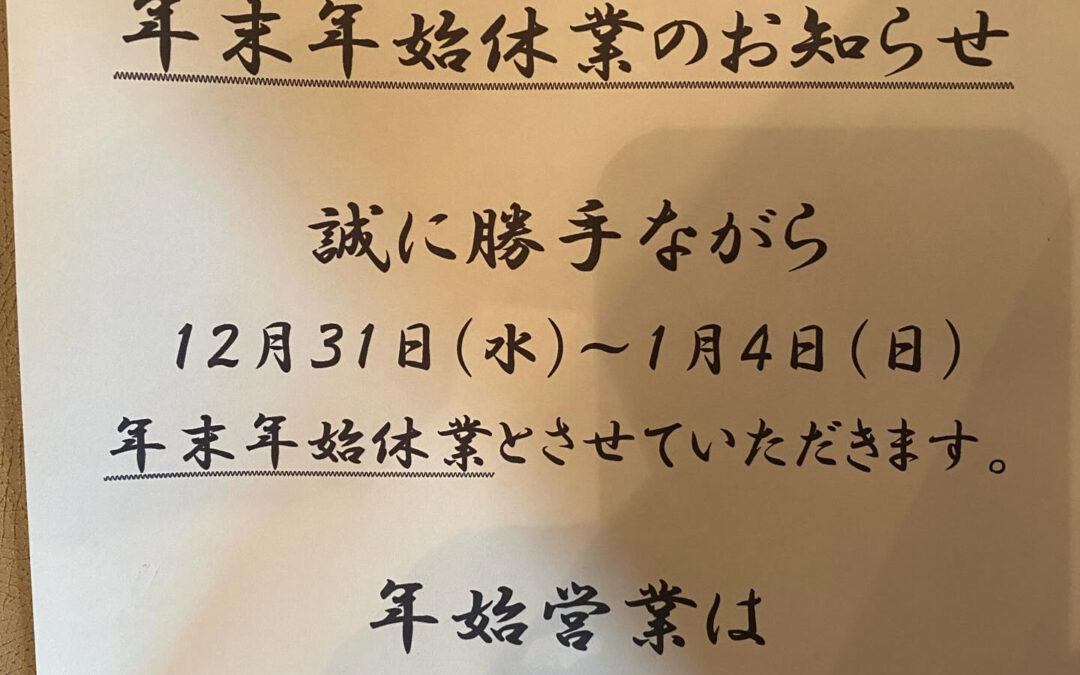 年末年始休業のお知らせ
誠に勝手ながら
12月31日(水)～1月4日(日)
年末年始休業とさせていただきます。
年始営業は